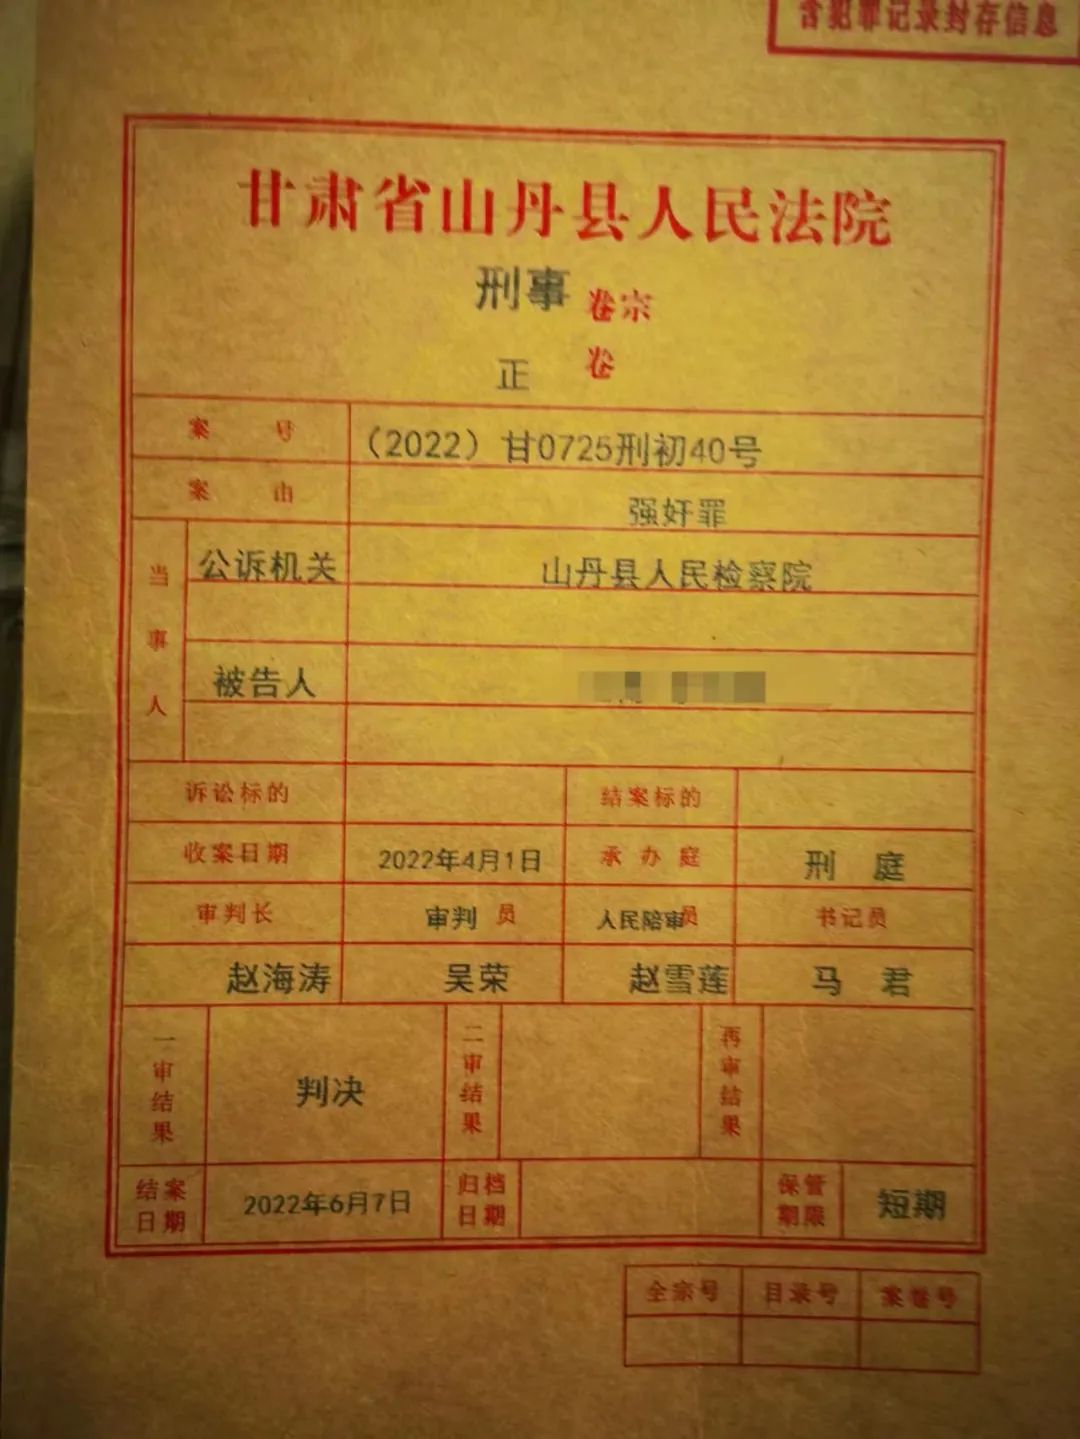 含犯罪记录封存信息
甘肃省山丹县人民法院
刑事 卷宗
正 卷
案 号 （2022）甘0725刑初40号
案 由 强奸罪
当事人
公诉机关 山丹县人民检察院
被告人
诉讼标的 结案标的
收案日期 2022年4月1日 承办庭 刑 庭
审判长 审判员 人民陪审员 书记员
赵海涛 吴荣 赵雪莲 马 君
一审结果 判决 二审结果 再审结果
结案日期 2022年6月7日 归档日期 保管期限 短期
全宗号 目录号 案卷号